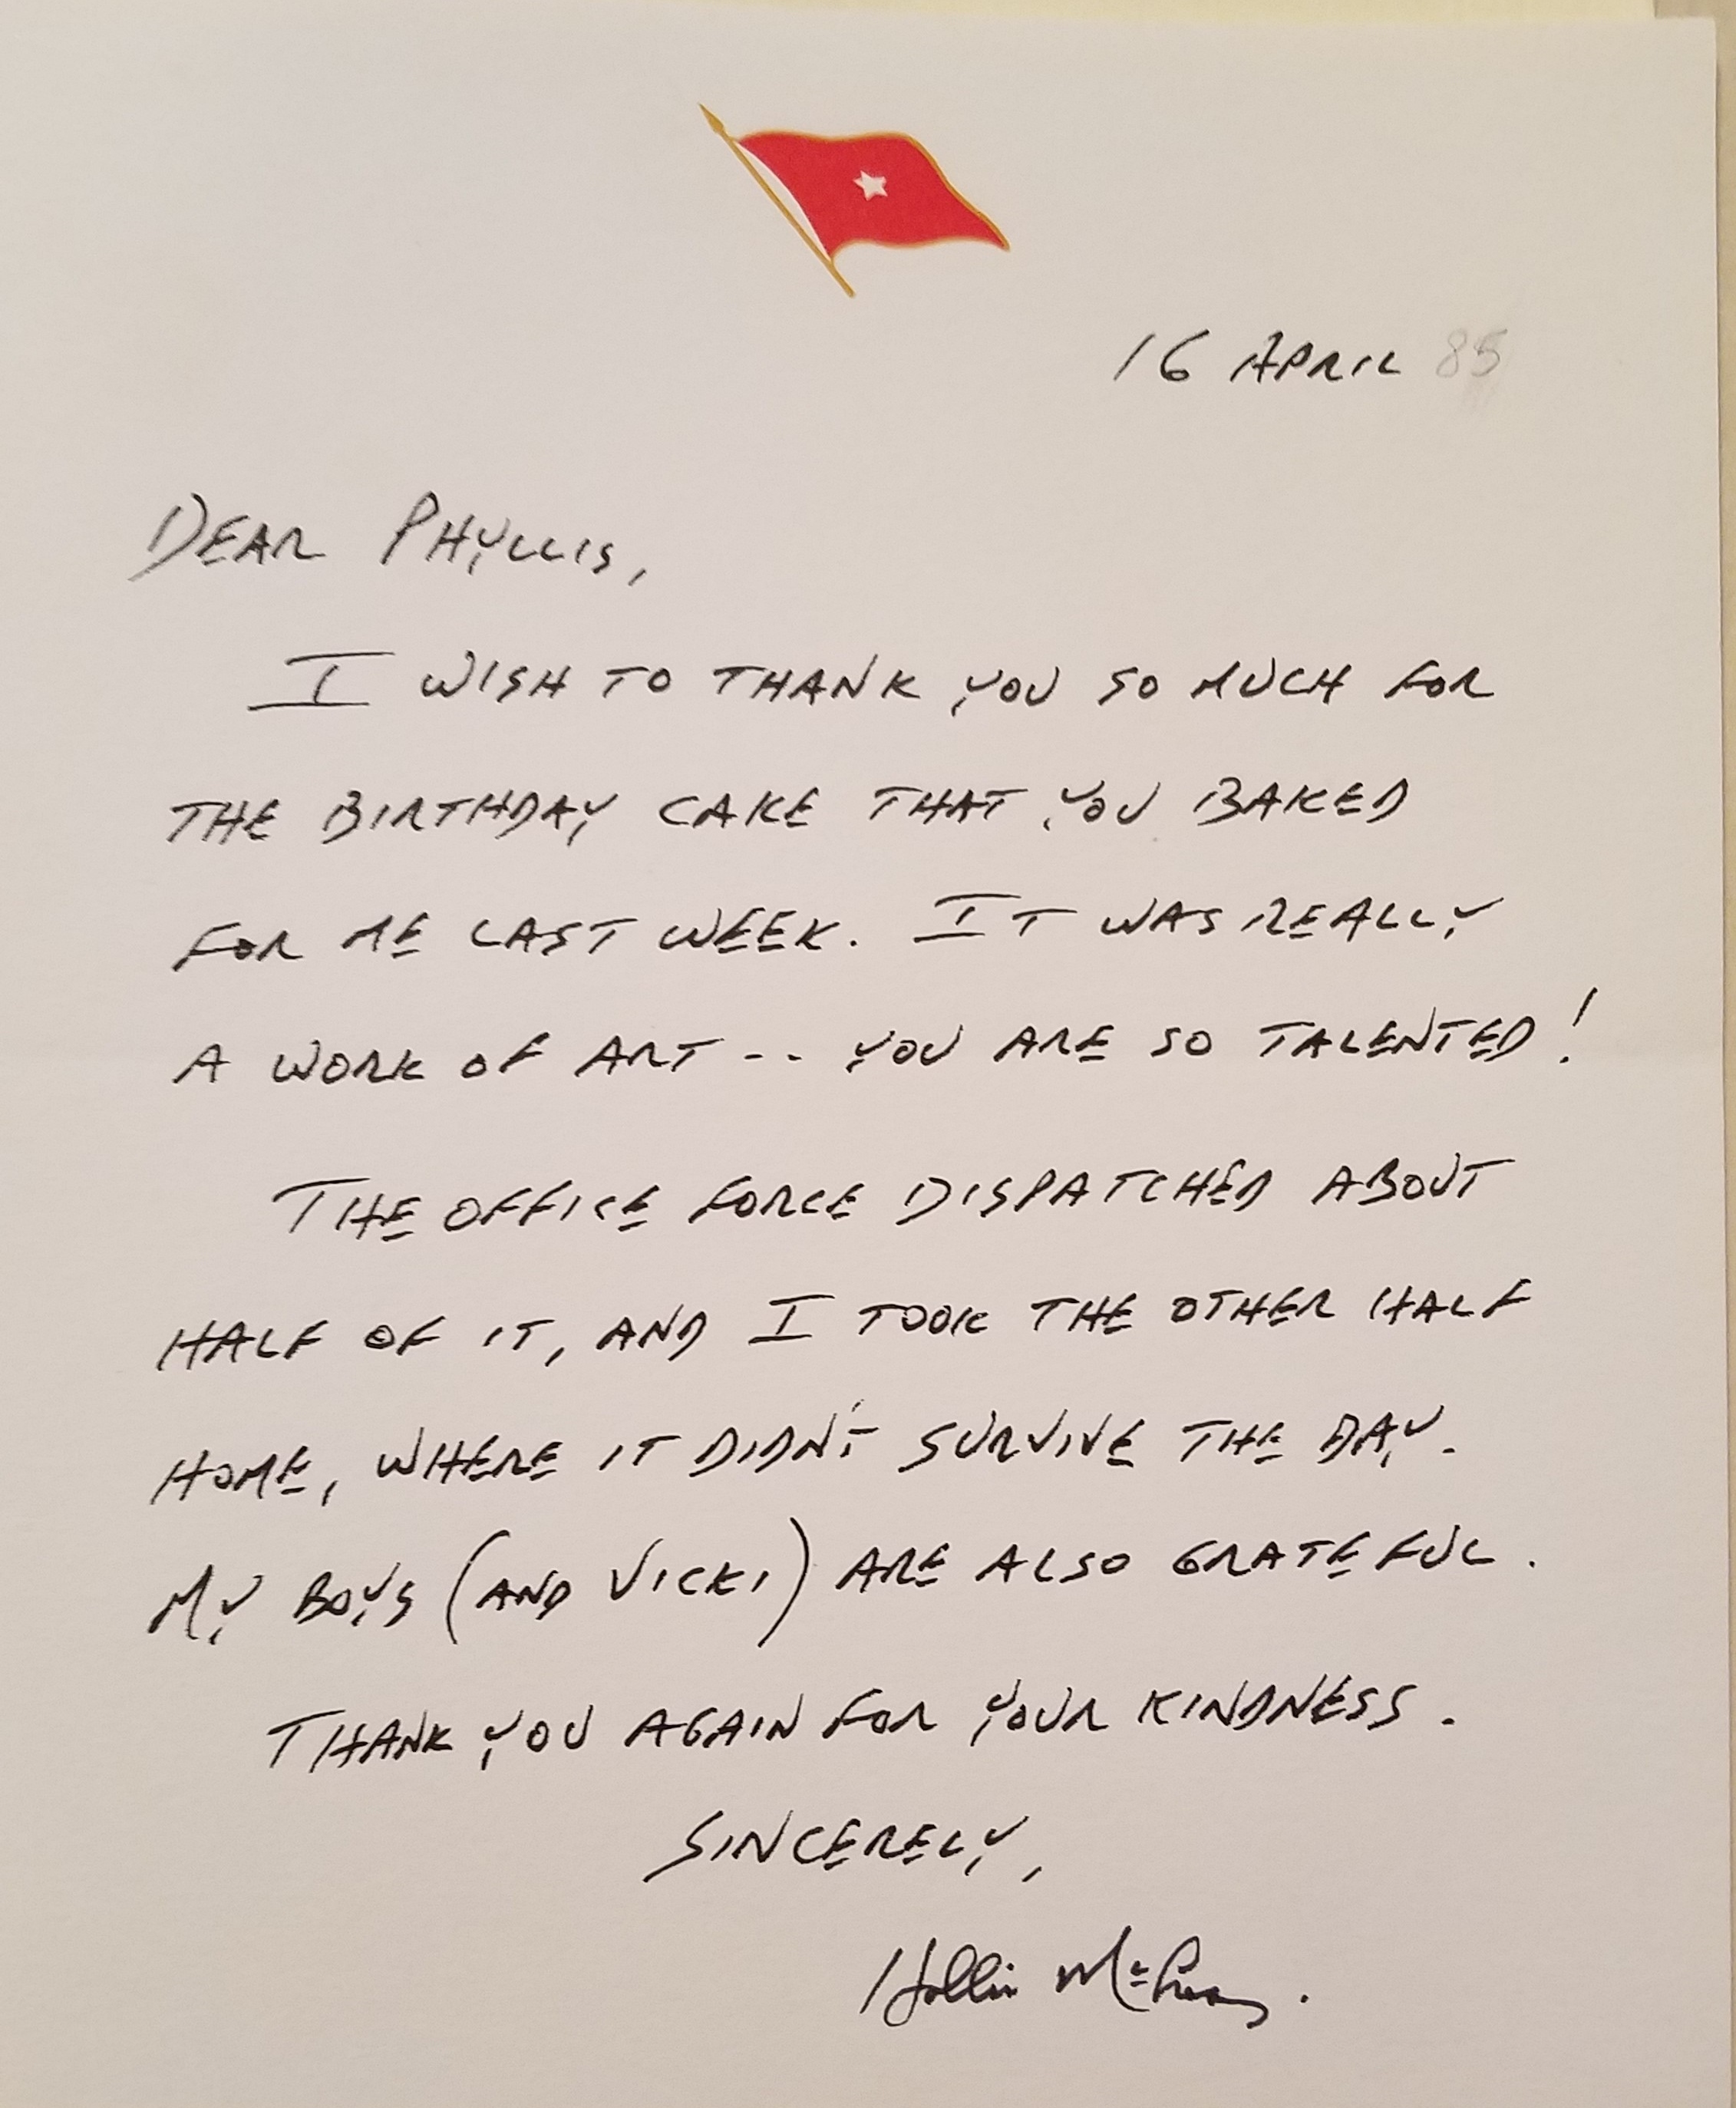 16 APRIL 85
DEAR PHYLLIS,
I WISH TO THANK YOU SO MUCH FOR
THE BIRTHDAY CAKE THAT YOU BAKED
FOR ME LAST WEEK. IT WAS REALLY
A WORK OF ART -- YOU ARE SO TALENTED!
THE OFFICE FORCE DISPATCHED ABOUT
HALF OF IT, AND I TOOK THE OTHER HALF
HOME, WHERE IT DIDN'T SURVIVE THE DAY.
MY BOYS (AND VICKI) ARE ALSO GRATEFUL.
THANK YOU AGAIN FOR YOUR KINDNESS.
SINCERELY,
Hollis